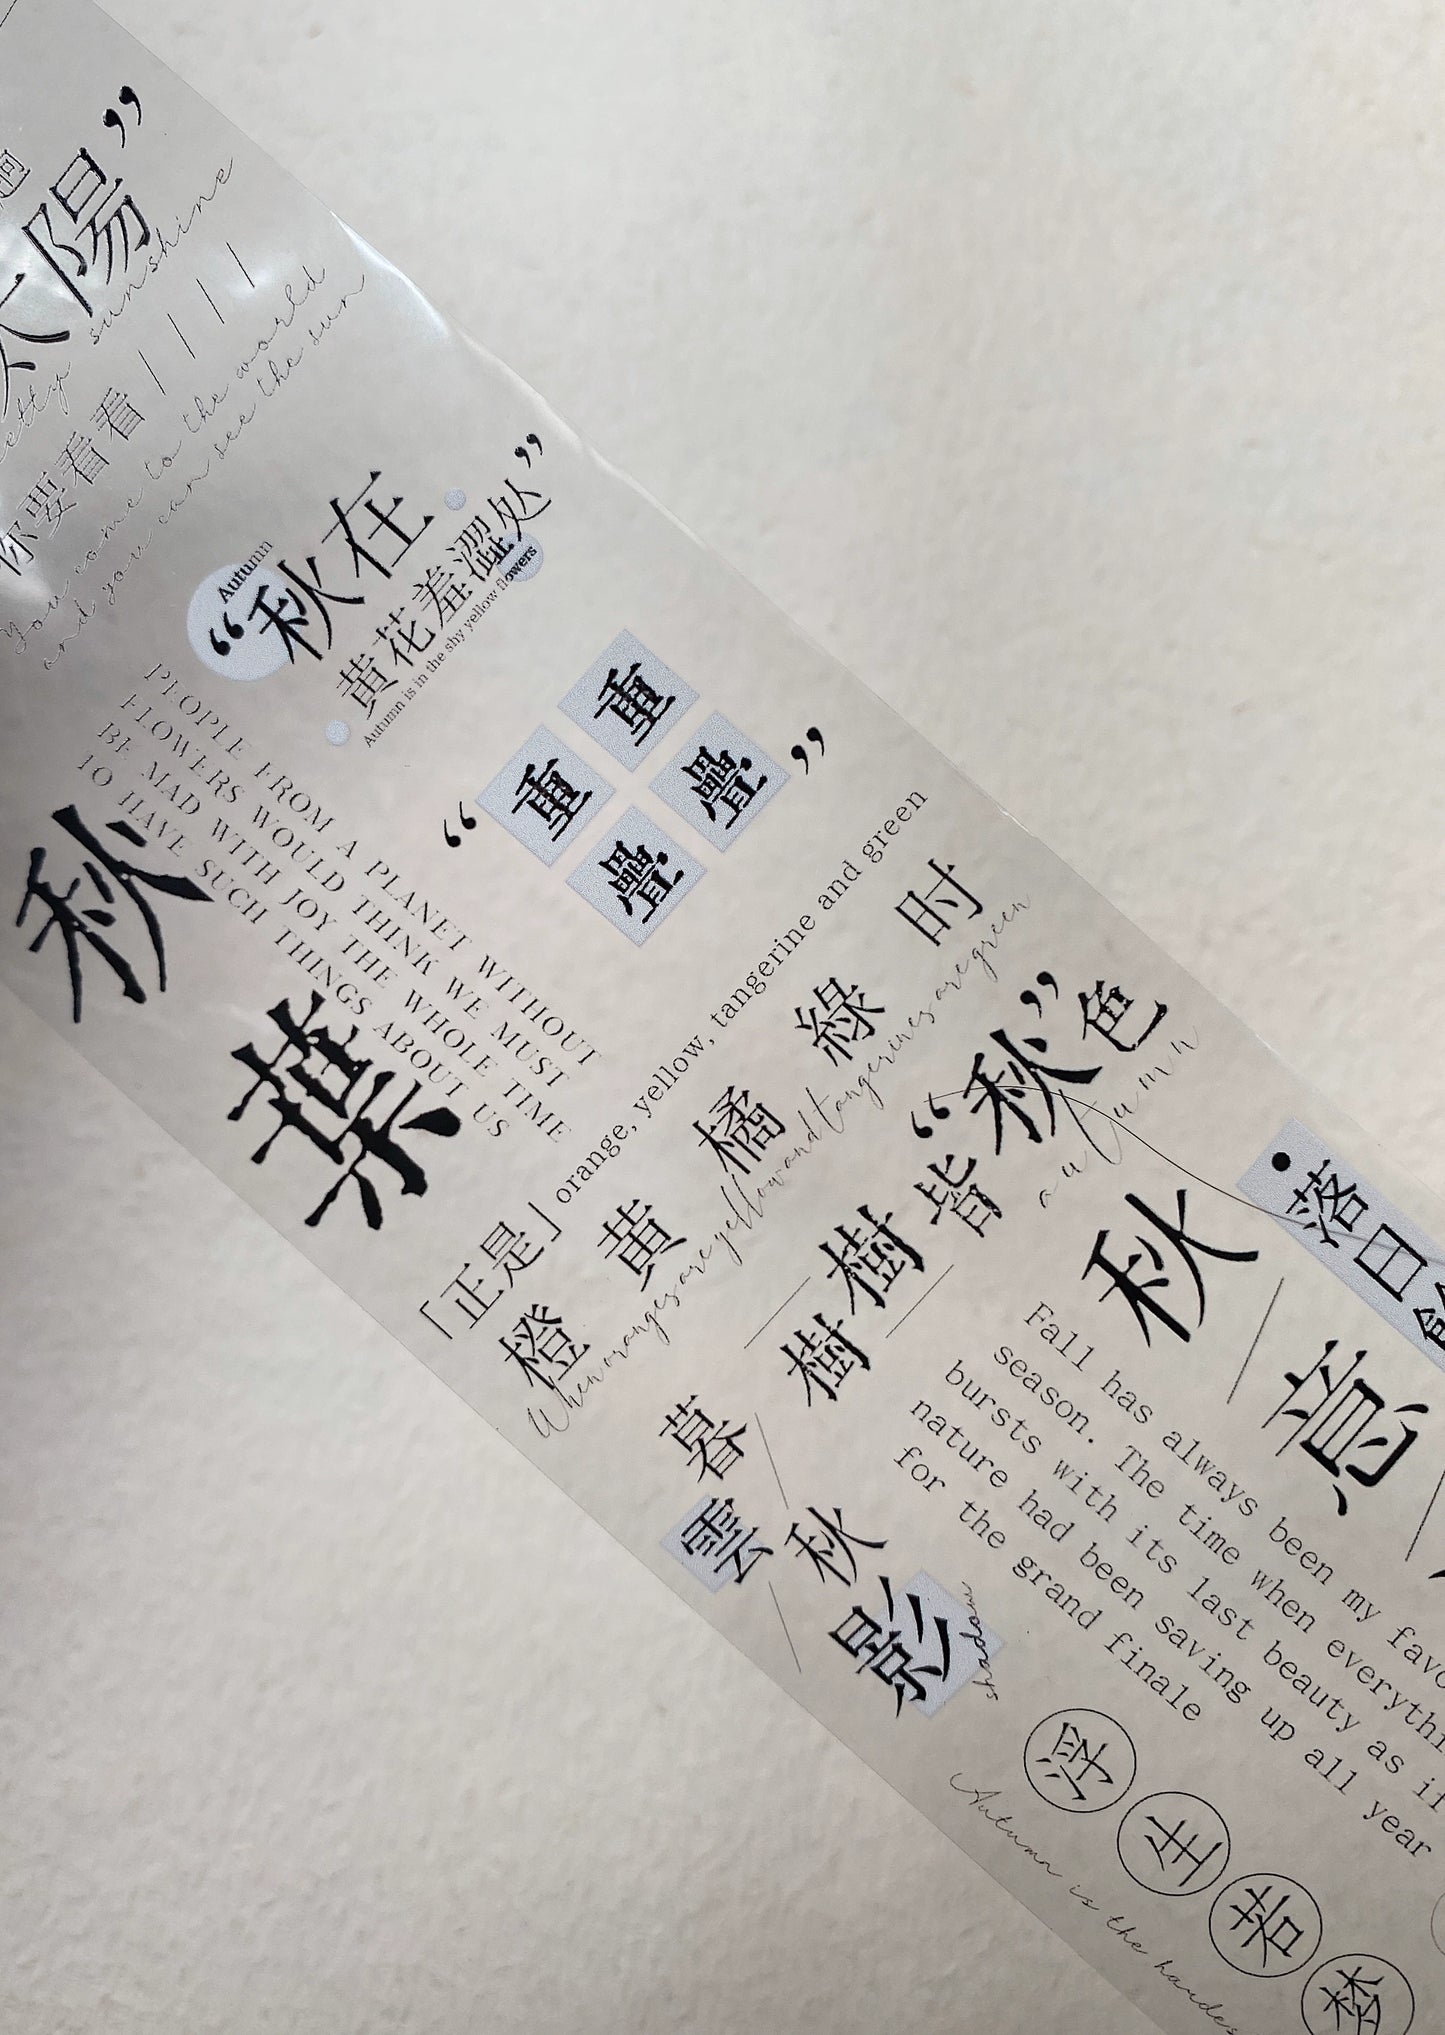 過
太陽”
etty sunshine
你要看看////
You come to the world
and you can see the sun
Autumn
“秋在
黄花羞澀处”
Autumn is in the shy yellow flowers
秋葉
PEOPLE FROM A PLANET WITHOUT
FLOWERS WOULD THINK WE MUST
BE MAD WITH JOY THE WHOLE TIME
TO HAVE SUCH THINGS ABOUT US
“重重
疊疊”
「正是」orange, yellow, tangerine and green
橙黄橘綠时
When oranges are yellow and tangerines are green
樹樹皆“秋”色
autumn
暮雲
秋影
shadow
秋意
落日
Fall has always been my favo
season. The time when everythi
bursts with its last beauty as if
nature had been saving up all year
for the grand finale
浮生若梦
Autumn is the hardes